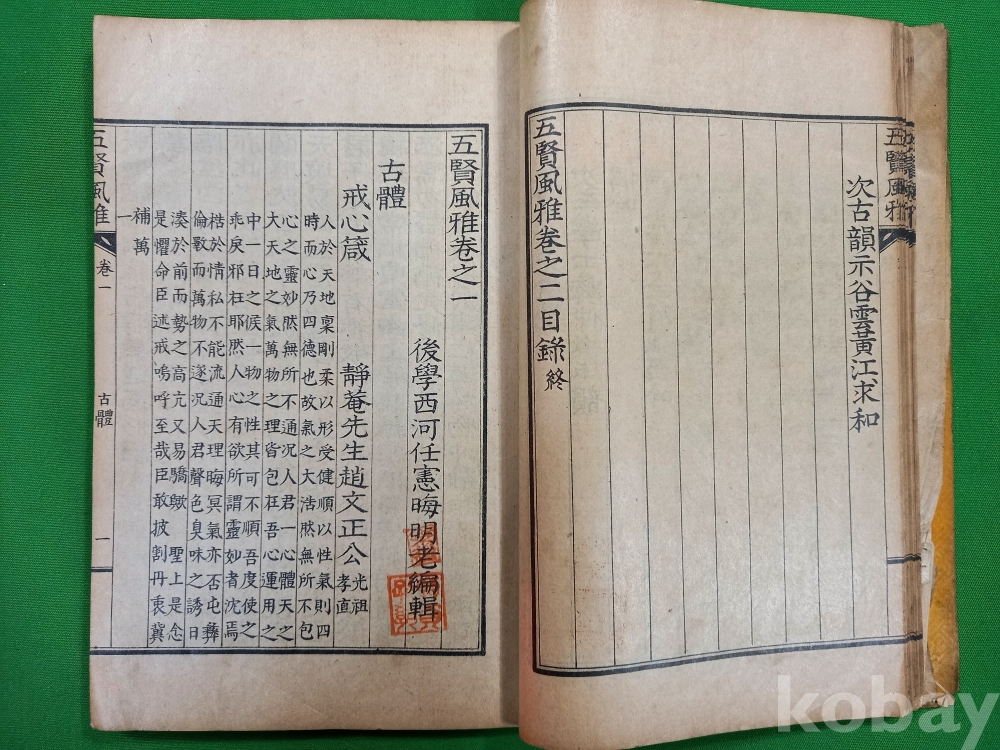 五賢風雅
次古韻示谷雲黃江求和
五賢風雅卷之二目錄 終
五賢風雅卷之一
後學西河任憲晦明老編輯
古體
戒心箴 靜菴先生趙文正公 光祖 孝直
人於天地稟剛柔以形受健順以性氣則四
時而心乃四德也故氣之大浩然無所不包
心之靈妙然無所不通况人君一心體天之
大天地之氣萬物之理皆包在吾心運用之
中一日之候一物之性其可不順吾度使之
乖戾邪枉耶然人心有欲所謂靈妙者沈焉
梏於情私不能流通天理晦冥氣亦否屯彝
倫斁而萬物不遂况人君聲色臭味之誘日
湊於前而勢之高亢又易驕歟 聖上是念
是懼命臣述戒嗚呼至哉臣敢披割丹衷冀
補萬一
五賢風雅 卷一 古體 一
kobay